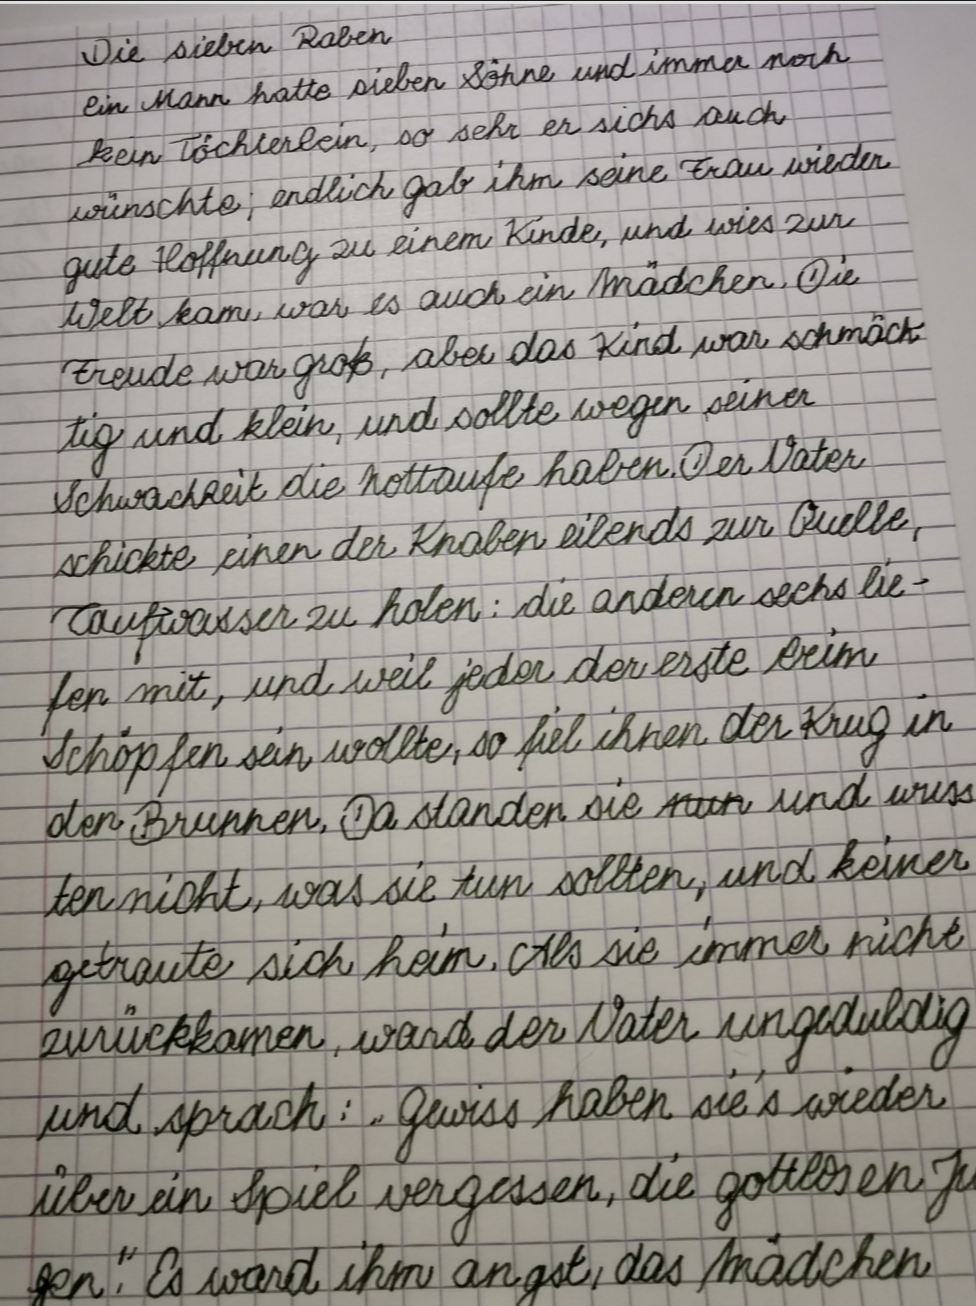 Die sieben Raben
ein Mann hatte sieben Söhne und immer noch
kein Töchterlein, so sehr er sichs auch
wünschte; endlich gab ihm seine Frau wieder
gute Hoffnung zu einem Kinde, und wies zur
Welt kam, war es auch ein Mädchen. Die
Freude war groß, aber das Kind war schmäch
tig und klein, und sollte wegen seiner
Schwachheit die Nottaufe haben. Der Vater
schickte einen der Knaben eilends zur Quelle,
Taufwasser zu holen: die anderen sechs lie-
fen mit, und weil jeder der erste beim
Schöpfen sein wollte, so fiel ihnen der Krug in
den Brunnen. Da standen sie und wuss
ten nicht, was sie tun sollten, und keiner
getraute sich heim. Als sie immer nicht
zurückkamen, ward der Vater ungeduldig
und sprach: „Gewiss haben sie's wieder
über ein Spiel vergessen, die gottlosen Ju
gen." Es ward ihm angst, das Mädchen